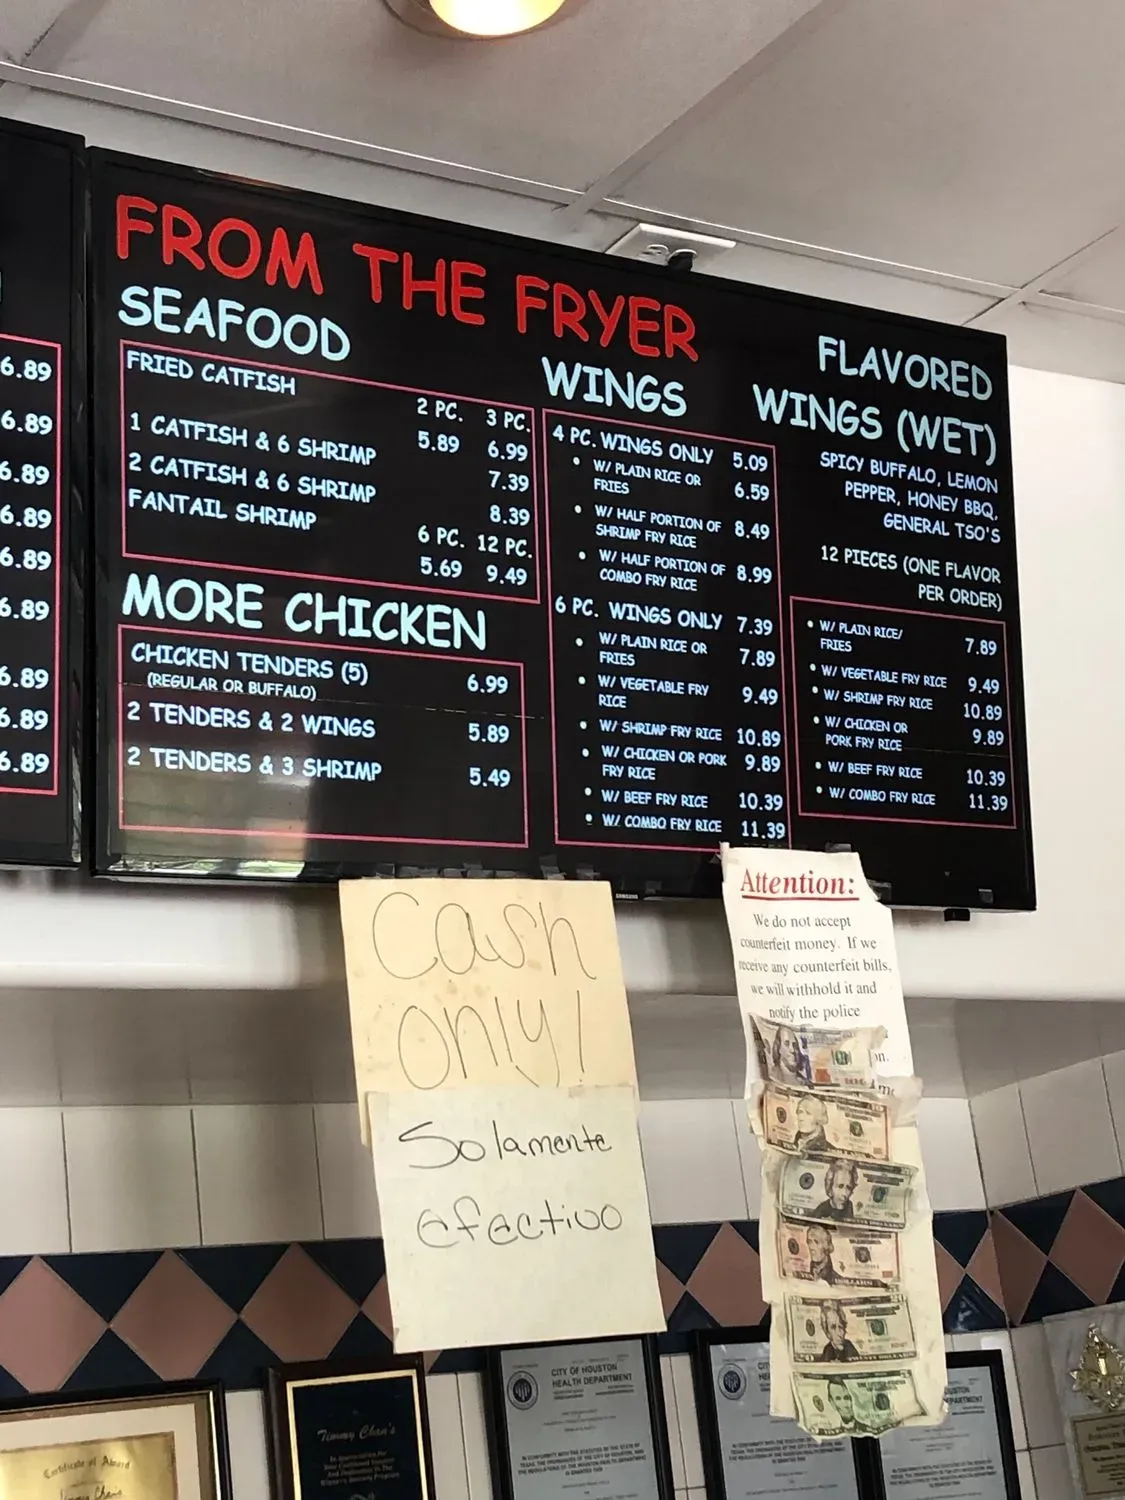 6.89
6.89
6.89
6.89
6.89
6.89
6.89
6.89
6.89
FROM THE FRYER
SEAFOOD
FRIED CATFISH
2 PC. 3 PC.
5.89 6.99
1 CATFISH & 6 SHRIMP 7.39
2 CATFISH & 6 SHRIMP 8.39
FANTAIL SHRIMP
6 PC. 12 PC.
5.69 9.49
MORE CHICKEN
CHICKEN TENDERS (5) 6.99
(REGULAR OR BUFFALO)
2 TENDERS & 2 WINGS 5.89
2 TENDERS & 3 SHRIMP 5.49
WINGS
4 PC. WINGS ONLY 5.09
• W/ PLAIN RICE OR 6.59
FRIES
• W/ HALF PORTION OF 8.49
SHRIMP FRY RICE
• W/ HALF PORTION OF 8.99
COMBO FRY RICE
6 PC. WINGS ONLY 7.39
• W/ PLAIN RICE OR 7.89
FRIES
• W/ VEGETABLE FRY 9.49
RICE
• W/ SHRIMP FRY RICE 10.89
• W/ CHICKEN OR PORK 9.89
FRY RICE
• W/ BEEF FRY RICE 10.39
• W/ COMBO FRY RICE 11.39
FLAVORED
WINGS (WET)
SPICY BUFFALO, LEMON
PEPPER, HONEY BBQ,
GENERAL TSO'S
12 PIECES (ONE FLAVOR
PER ORDER)
• W/ PLAIN RICE/ 7.89
FRIES
• W/ VEGETABLE FRY RICE 9.49
• W/ SHRIMP FRY RICE 10.89
• W/ CHICKEN OR 9.89
PORK FRY RICE
• W/ BEEF FRY RICE 10.39
• W/ COMBO FRY RICE 11.39
SAMSUNG
Cash
only!
Solamente
efectivo
Attention:
We do not accept
counterfeit money. If we
receive any counterfeit bills,
we will withhold it and
notify the police
on.
Certificate of Award
Timmy Chan's
CITY OF HOUSTON
HEALTH DEPARTMENT